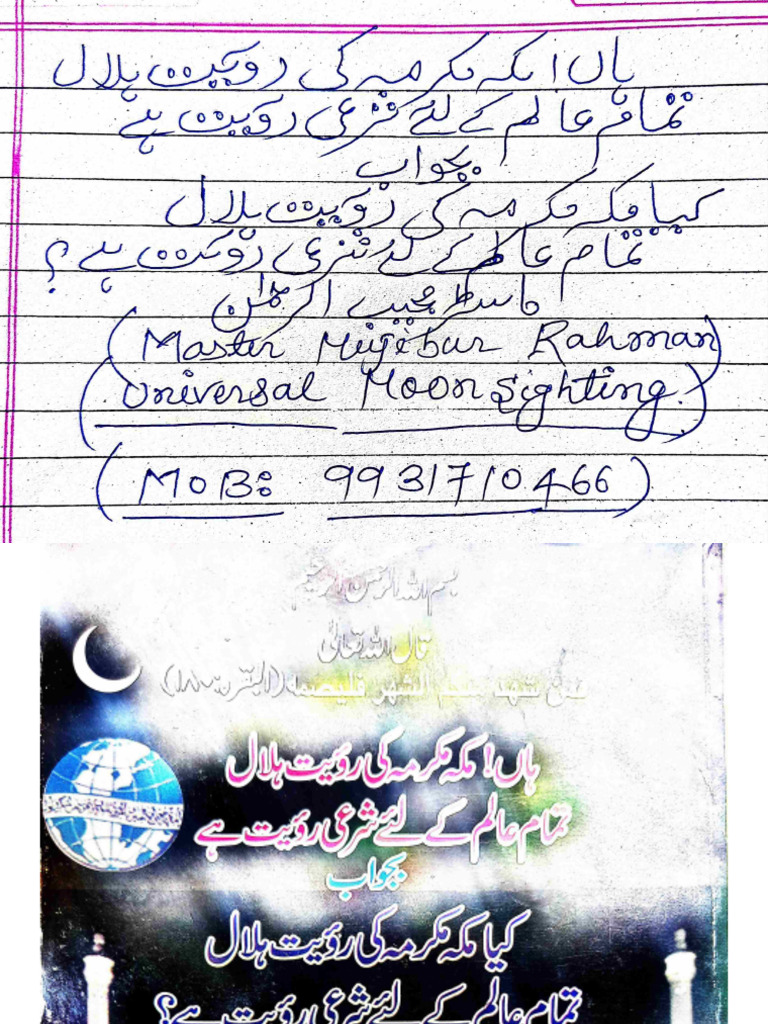 ہاں! مکہ مکرمہ کی رویت ہلال
تمام عالم کے لئے شرعی رویت ہے
بجواب
کیا مکہ مکرمہ کی رویت ہلال
تمام عالم کے لئے شرعی رویت ہے؟
ماسٹر مجیب الرحمٰن
(Master Mujibur Rahman)
(Universal Moon Sighting)
(MOB: 9931710466)
بسم اللہ الرحمن الرحیم
قال اللہ تعالیٰ
فمن شهد منكم الشهر فليصمه (البقرة:
ہاں! مکہ مکرمہ کی رؤیت ہلال
تمام عالم کے لئے شرعی رؤیت ہے
بجواب
کیا مکہ مکرمہ کی رؤیت ہلال
تمام عالم کے لئے شرعی رؤیت ہے؟